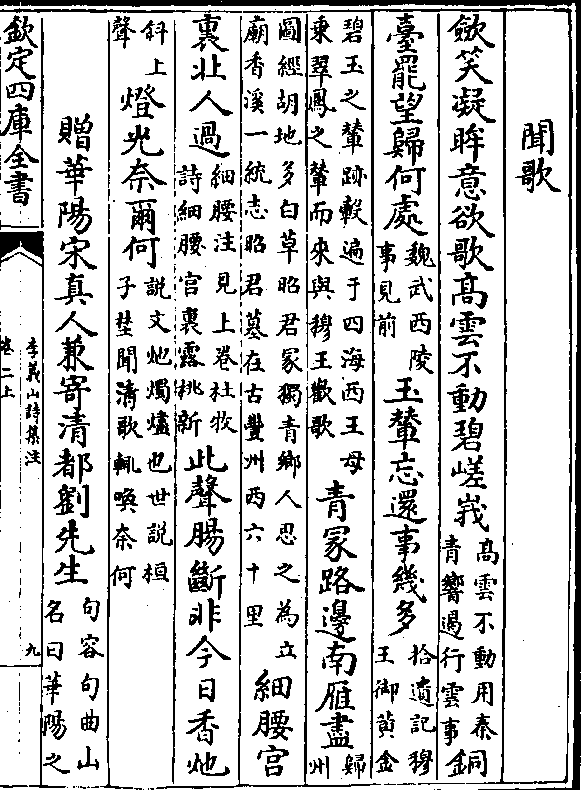 聞歌
歛笑凝眸意欲歌高雲不動碧嵯峩高雲不動用秦青響遏行雲事銅
臺罷望歸何處魏武西陵事見前玉輦忘還事幾多拾遺記穆王御黄金
碧玉之輦跡轂遍于四海西王母乘翠鳳之輦而來與穆王歡歌青冢路邊南雁盡歸州
圖經胡地多白草昭君冢獨青鄉人思之為立廟香溪一統志昭君墓在古豐州西六十里細腰宫
裏北人過細腰注見上卷杜牧詩細腰宫裏露桃新此聲腸斷非今日香灺
斜上聲燈光奈爾何説文灺燭燼也世説桓子埜聞清歌輒喚奈何
贈華陽宋真人兼寄清都劉先生句容句曲山名曰華陽之
欽定四庫全書
李義山詩集注
卷二上
九